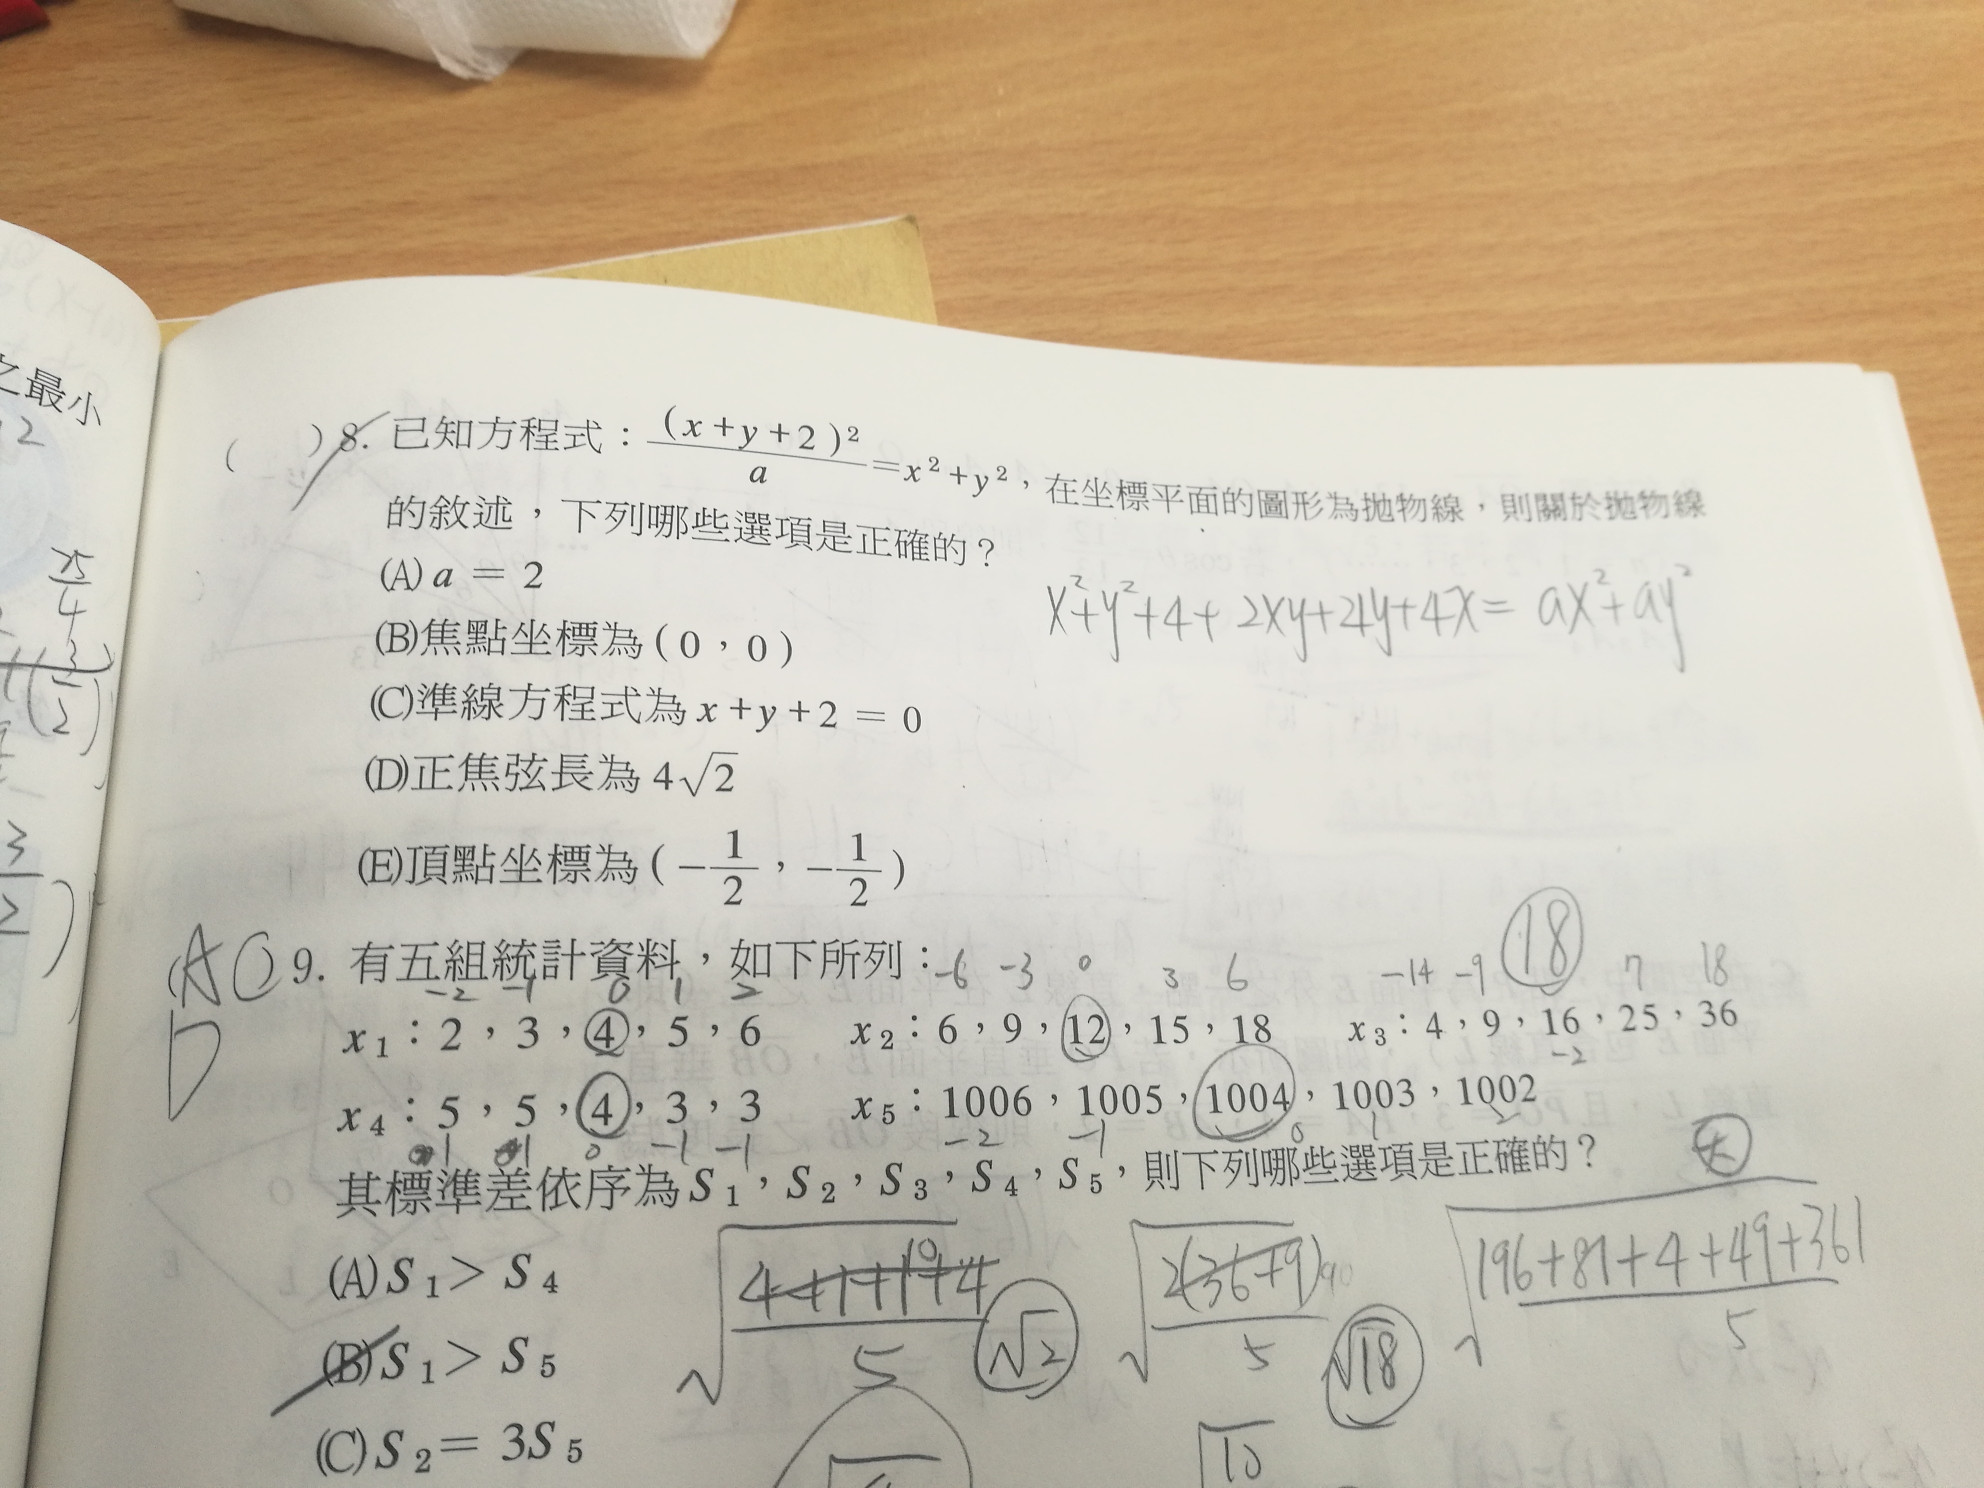 之最小
( ) 8. 已知方程式：(x+y+2)²/a=x²+y²，在坐標平面的圖形為拋物線，則關於拋物線
的敘述，下列哪些選項是正確的？
(A) a = 2
x²+y²+4+2xy+24y+4x= ax²+ay²
(B)焦點坐標為(0，0)
(C)準線方程式為x+y+2=0
(D)正焦弦長為4√2
(E)頂點坐標為(-1/2，-1/2)
18
A C D 9. 有五組統計資料，如下所列：
-6 -3 0 3 6 -14 -9 7 18
-2 -1 0 1 2
x₁：2，3，4，5，6 x₂：6，9，12，15，18 x₃：4，9，16，25，36
-2
x₄：5，5，4，3，3 x₅：1006，1005，1004，1003，1002
1 1 0 -1 -1 -2 -1 0 1 2
其標準差依序為S₁，S₂，S₃，S₄，S₅，則下列哪些選項是正確的？
(A) S₁> S₄
√(4+1+1+4/5) 10 √2
√(2(36+9)/5) 90 √18
√(196+81+4+49+361/5)
(B) S₁> S₅
(C) S₂= 3S₅
√10